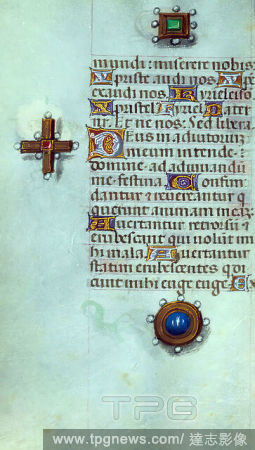 mundi: miserere nobis:
Xpriste audi nos. Xpe
exaudi nos. Kyrieleiso
Xpistel. Kyriel. Pater
nr. Et ne nos: Sed libera.
Deus in adiutoriuz
meum intende:
domine ad adiuuandū
me festina. Confun
dantur & reuerantur q
querunt animam meaz:
Auertantur retrorsū &
erubescant qui uolūt mi
hi mala. Auertantur
statim erubescentes q
cunt mihi euge euge. Ex
TPG
www.tpgnews.com/達志影像